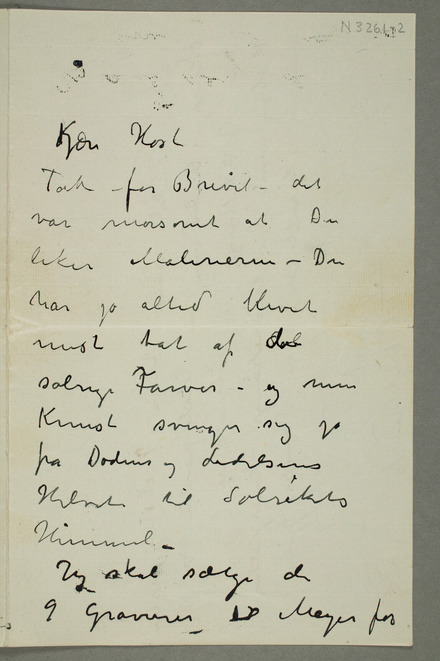 N 3261-2
Kjære Kost
Tak for Brevet – det
var morsomt at Du
liker Malerierne – Du
har jo altid blevet
mest tat af de
solrige Farver – og min
Kunst svinger sig jo
fra Dødens og
Helvete til Solrikets
Himmel –
Jeg skal sælge de
9 Gravurer Meyer for